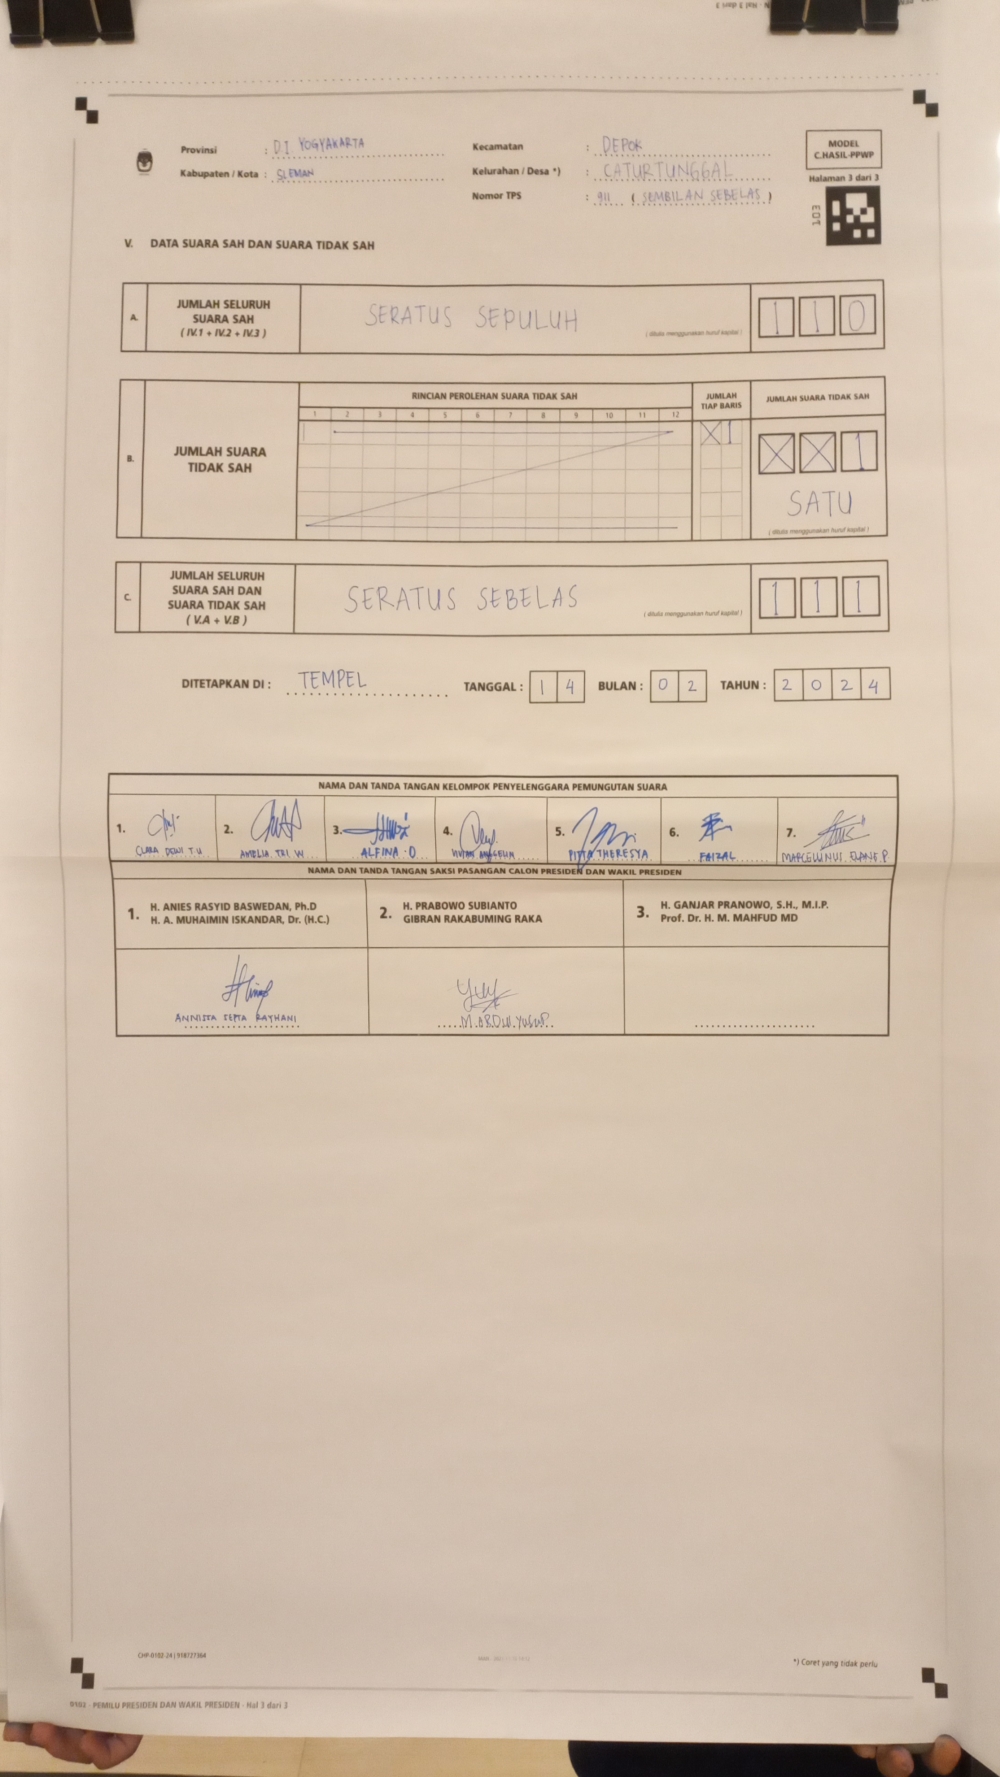 Provinsi : D.I YOGYAKARTA
Kabupaten / Kota : SLEMAN
Kecamatan : DEPOK
Kelurahan / Desa *) : CATURTUNGGAL
Nomor TPS : 911 ( SEMBILAN SEBELAS )
MODEL
C.HASIL-PPWP
Halaman 3 dari 3
V. DATA SUARA SAH DAN SUARA TIDAK SAH
A. JUMLAH SELURUH
SUARA SAH
( IV.1 + IV.2 + IV.3 )
SERATUS SEPULUH
( ditulis menggunakan huruf kapital )
1 1 0
B. JUMLAH SUARA
TIDAK SAH
RINCIAN PEROLEHAN SUARA TIDAK SAH
1 2 3 4 5 6 7 8 9 10 11 12
JUMLAH
TIAP BARIS
X 1
JUMLAH SUARA TIDAK SAH
X X 1
SATU
( ditulis menggunakan huruf kapital )
C. JUMLAH SELURUH
SUARA SAH DAN
SUARA TIDAK SAH
( V.A + V.B )
SERATUS SEBELAS
( ditulis menggunakan huruf kapital )
1 1 1
DITETAPKAN DI : TEMPEL TANGGAL : 1 4 BULAN : 0 2 TAHUN : 2 0 2 4
NAMA DAN TANDA TANGAN KELOMPOK PENYELENGGARA PEMUNGUTAN SUARA
1. 2. 3. 4. 5. 6. 7.
CLARA DEWI T.U AMELIA TRI W ALFINA .D PITTA THERESYA FAIZAL
NAMA DAN TANDA TANGAN SAKSI PASANGAN CALON PRESIDEN DAN WAKIL PRESIDEN
1. H. ANIES RASYID BASWEDAN, Ph.D
H. A. MUHAIMIN ISKANDAR, Dr. (H.C.)
2. H. PRABOWO SUBIANTO
GIBRAN RAKABUMING RAKA
3. H. GANJAR PRANOWO, S.H., M.I.P.
Prof. Dr. H. M. MAHFUD MD
ANNISTA SEPTA RAYHANI
M. ABDUL YUSUP
CHP-0102-24 | 918727364
*) Coret yang tidak perlu
9102 - PEMILU PRESIDEN DAN WAKIL PRESIDEN - Hal 3 dari 3